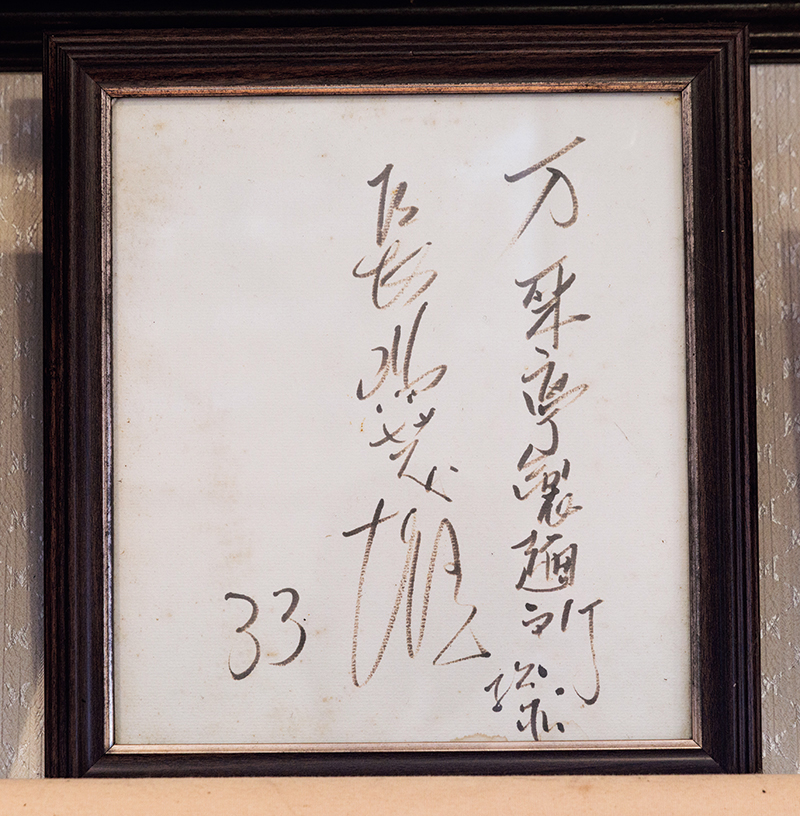 万来亭製麺所
江様
長嶋茂雄
33